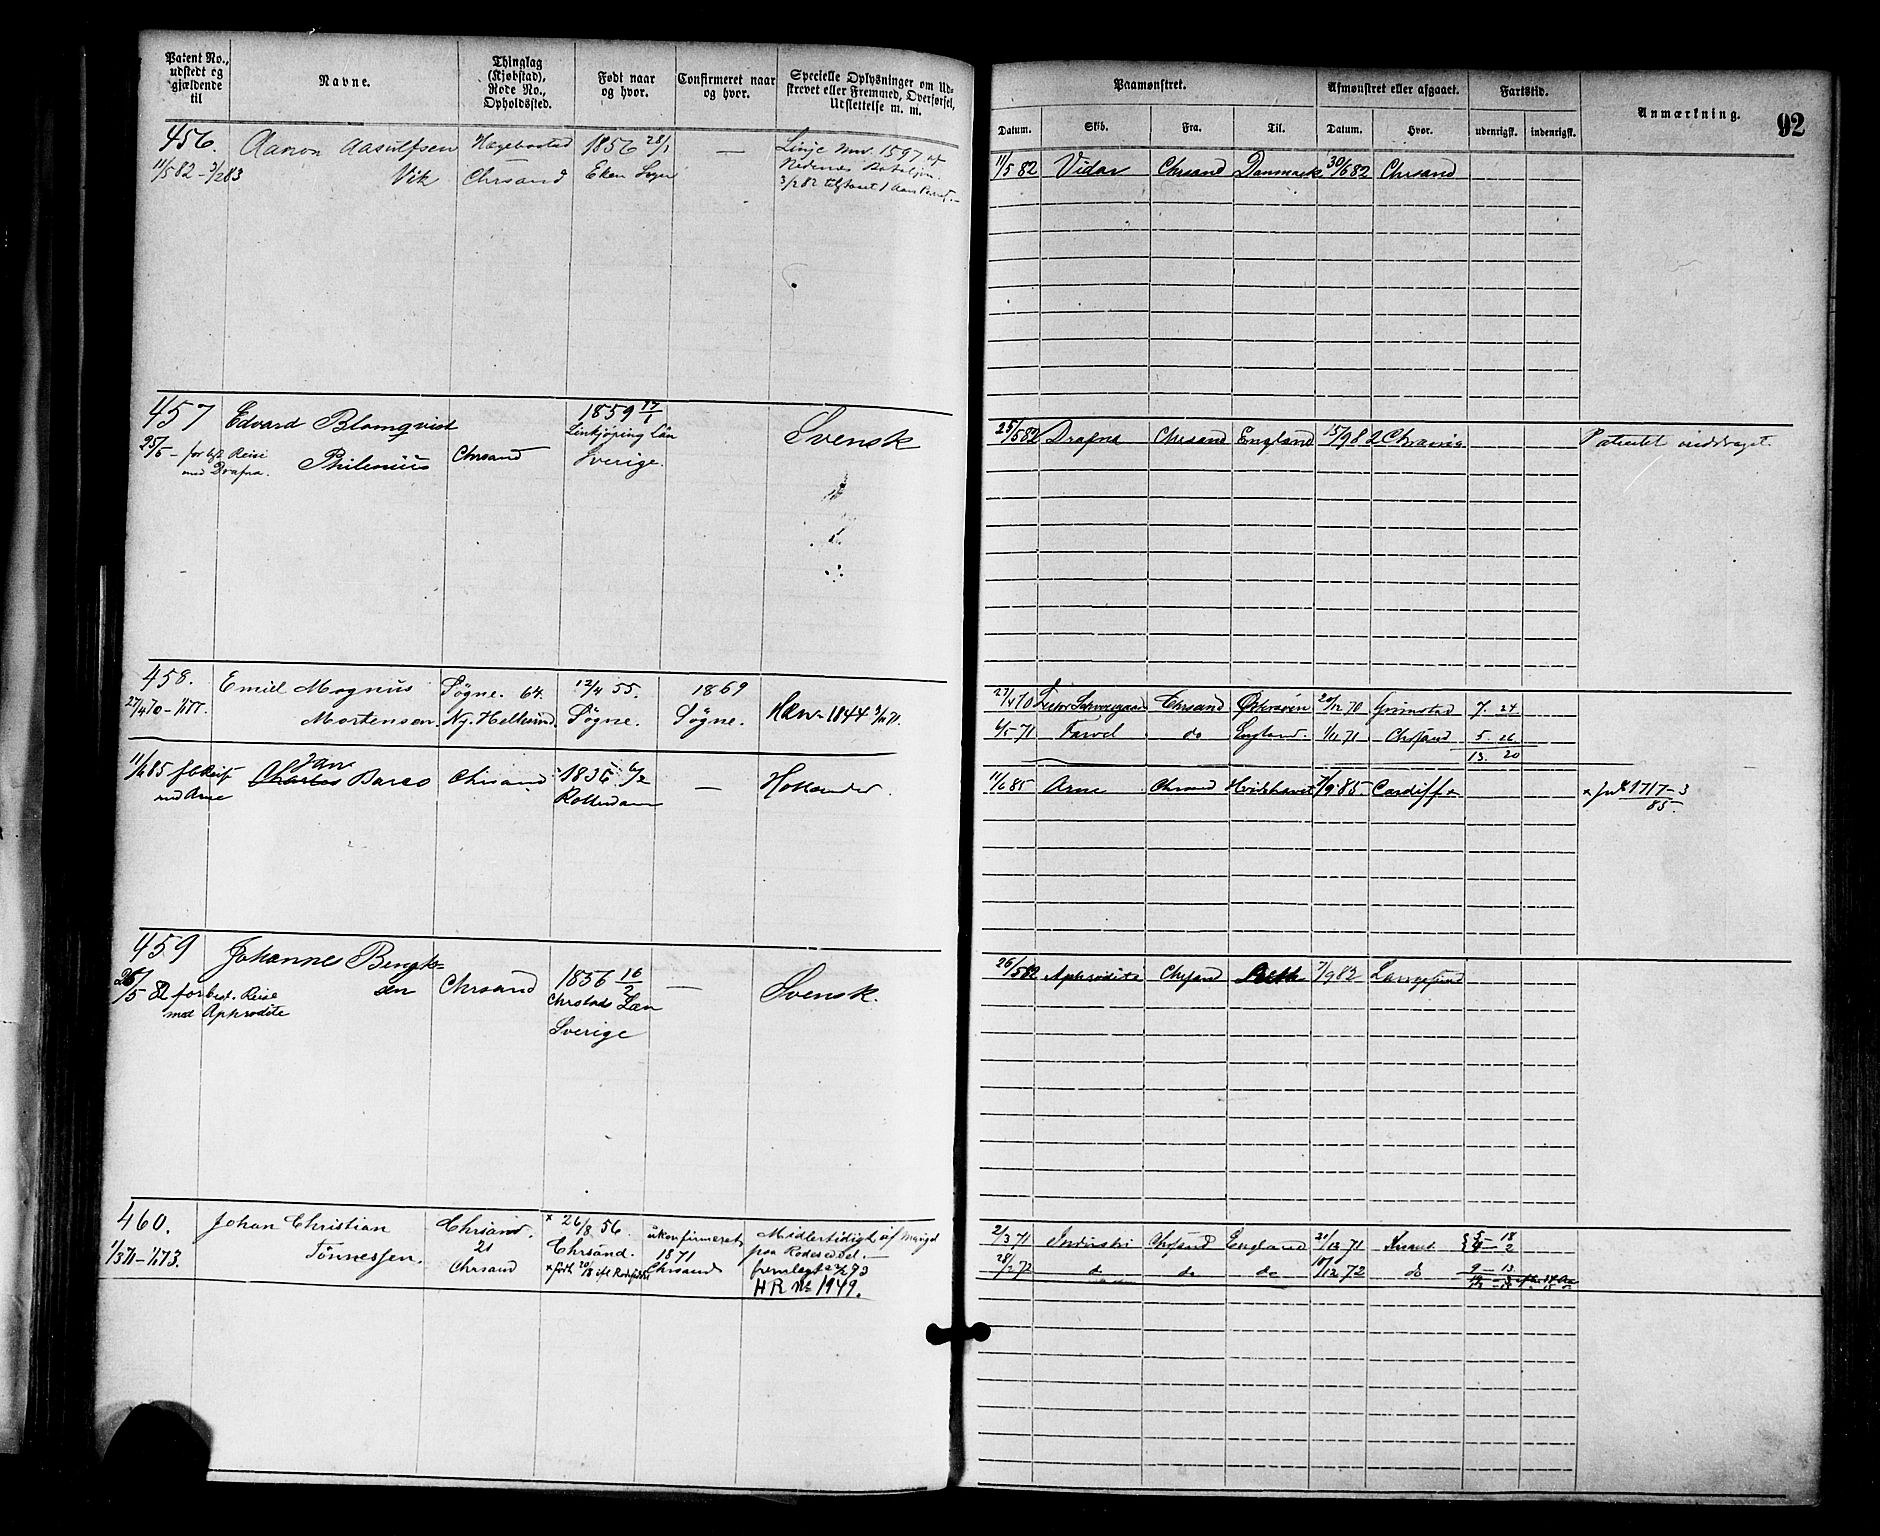 Patent No., udstedt og gjældende til
Navne.
Thinglag (Kjøbstad), Rode No., Opholdssted.
Født naar og hvor.
Confirmeret naar og hvor.
Specielle Oplysninger om Udskrevet eller Fremmed, Overførsel, Udslettelse m. m.
Paamønstret.
Afmønstret eller afgaaet.
Fartstid.
Anmærkning.
92
Datum.
Skib.
Fra.
Til.
Datum.
Hvor.
udenrigsk.
indenrigsk.
456. Aanon Aasulfsen Hægebostad 1856 28/1 — Linje No. 1597 af
11/5 82 - 3/2 83 Vik Chrsand Eken Sogn Nedenes Bataljon.
3/2 82 tilstaaet 1 Aars
11/5 82 Vidar Chrsand Danmark 30/6 82 Chrsand
457 Edvard Blomqvist 1859 17/1 Svensk
25/5 - for bst. Reise Philenius Chrsand Linkjöping Län
med Drafna. Sverige.
25/5 82 Drafna Chrsand England 15/9 82 Chrania Patentet inddraget.
458. Emil Magnus Søgne. 64. 12/4 55. 1869
27/4 70 - 1/1 77. Mortensen. Ng. Hellesund Søgne. Søgne. 1844
27/4 70 Chrsand Østersøen 20/12 70 Grimstad 7. 24
6/5 71 Farvel do England. 1/11 71 Chrsand 5. 26
13. 20
Jan
11/6 85 f. b. Reise Charles Barco Chrsand 1835 6/2 — Hollænder.
med Arne Rotterdam
11/6 85 Arne Chrsand Hvidehavet 7/9 85 Cardiff x x Jnl 1717-3
85.
459 Johannes Bengt= 1836 16/2 — Svensk.
26/5 82 for best. Reise sen Chrsand Chrstads Län
med Aphrodite Sverige
26/5 82 Aphrodite Chrsand 7/9 82 Langesund
460. Johan Christian Chrsand. x 26/8 56. ukonfirmeret, Midlertidigt af Mangel
1/3 71 - 1/1 73. Tønnessen. 21 Chrsand. 1871 paa Rodeseddel. —
Chrsand x født 20/8 Chrsand fremlagt 73
HR No 1949.
2/3 71 Industri Chrsand England 21/12 71 5 - 18
28/2 72 do do do 10/12 72 do 9 - 13